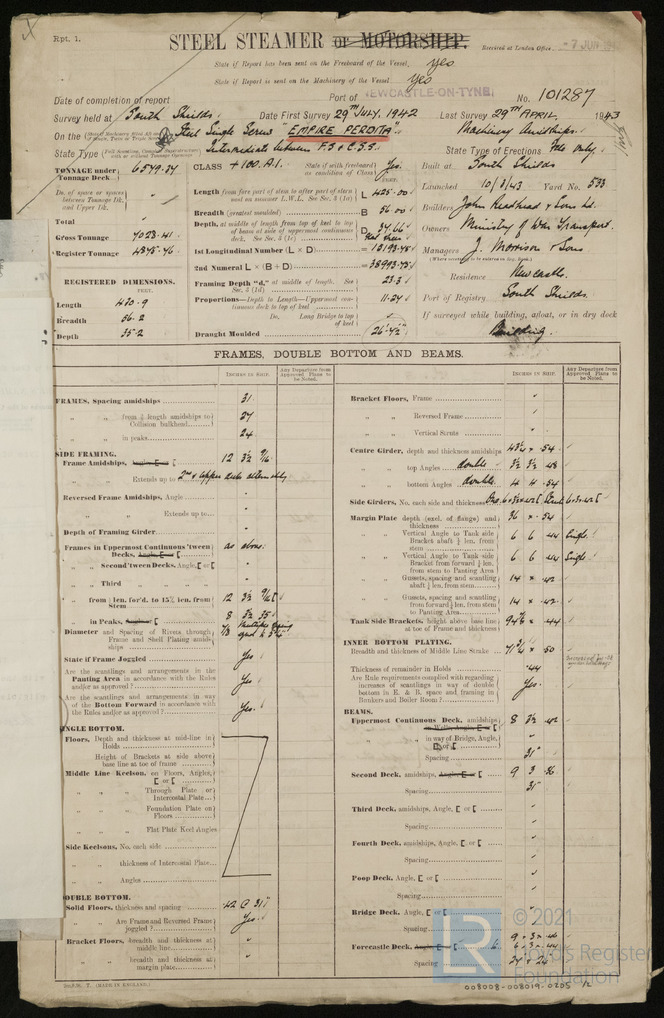 Rpt. 1.
STEEL STEAMER OR MOTORSHIP.
Received at London Office 7 JUN
State if Report has been sent on the Freeboard of the Vessel, yes
State if Report is sent on the Machinery of the Vessel Yes
Date of completion of report
Port of NEWCASTLE-ON-TYNE
No. 101287
Survey held at South Shields
Date First Survey 29TH JULY, 1942
Last Survey 29TH APRIL, 1943
On the Steel Single Screw "EMPIRE PERDITA" Machinery Amidships.
State Type Intermediate between F.S & C.S.S.
State Type of Erections Fcle only.
TONNAGE under Tonnage Deck 6579.34
Do. of space or spaces between Tonnage Dk. and Upper Dk. "
Total "
Gross Tonnage 7028.41
Register Tonnage 4875.76
REGISTERED DIMENSIONS.
FEET.
Length 430.9
Breadth 56.2
Depth 35.2
CLASS +100.A1.
State if with freeboard as condition of Class Yes.
Length from fore part of stem to after part of stern post on summer L.W.L. See Sec. 3 (1a) L 425.00
Breadth (greatest moulded) B 56.00
Depth, at middle of length from top of keel to top of beam at side of uppermost continuous deck. See Sec. 3 (1c) D
1st Longitudinal Number (L × D)
2nd Numeral L × (B + D) = 38993.75
Framing Depth "d," at middle of length. See Sec. 3 (1d) 23.3
Proportions—Depth to Length—Uppermost continuous deck to top of keel 11.24
Do. Long Bridge to top of keel
Draught Moulded 26'-4½"
Built at South Shields
Launched 10/3/43 Yard No. 533
Builders John Readhead & Sons Ld.
Owners Ministry of War Transport.
Managers J. Morrison & Sons
Residence Newcastle.
Port of Registry South Shields.
If surveyed while building, afloat, or in dry dock
Building.
FRAMES, DOUBLE BOTTOM AND BEAMS.
INCHES IN SHIP.
Any Departure from Approved Plans to be Noted.
INCHES IN SHIP.
Any Departure from Approved Plans to be Noted.
FRAMES, Spacing amidships 31
" " from ⅗ length amidships to Collision bulkhead 27
" " in peaks 24
SIDE FRAMING.
Frame Amidships, Angle, [ or [ 12 3½
" " Extends up to 2nd & Upper decks alternately
Reversed Frame Amidships, Angle "
" " Extends up to "
Depth of Framing Girder "
Frames in Uppermost Continuous 'tween Decks, Angle, [ or [ as above.
" " Second 'tween Decks, Angle, [ or [ "
" " Third " " "
" from ⅗ len. for'd. to 15% len. from Stem 12 3½
" in Peaks, Angle or [ 8 3½ 35
Diameter and Spacing of Rivets through Frame and Shell Plating amidships 7/8
State if Frame Joggled Yes
Are the scantlings and arrangements in the Panting Area in accordance with the Rules and/or as approved? Yes
Are the scantlings and arrangements in way of the Bottom Forward in accordance with the Rules and/or as approved? Yes.
SINGLE BOTTOM.
Floors, Depth and thickness at mid-line in Holds
Height of Brackets at side above base line at toe of frame
Middle Line Keelson, on Floors, Angles, [ or [
" " Through Plate or Intercostal Plate
" " Foundation Plate on Floors
" " Flat Plate Keel Angles
Side Keelsons, No. each side
" " thickness of Intercostal Plate
" " Angles
DOUBLE BOTTOM.
Solid Floors, thickness and spacing .42 @ 31
" " Are Frame and Reversed Frame joggled? Yes
Bracket Floors, breadth and thickness at middle line "
" " breadth and thickness at margin plate "
Bracket Floors, Frame "
" " Reversed Frame "
" " Vertical Struts "
Centre Girder, depth and thickness amidships 43½ × .54
" " top Angles double 3½ 3½ .48
" " bottom Angles double 4 4 .54
Side Girders, No. each side and thickness
Margin Plate depth (excl. of flange) and thickness 36 × .54
" " Vertical Angle to Tank side Bracket abaft ¼ len. from stem 6 6 .44 Single
" " Vertical Angle to Tank side Bracket from forward ¼ len. from stem to Panting Area 6 6 .44 Single
" " Gussets, spacing and scantling abaft ¼ len. from stem 14 × .42
" " Gussets, spacing and scantling from forward ¼ len. from stem to Panting Area 14 × .42
Tank Side Brackets, height above base line at toe of Frame and thickness
INNER BOTTOM PLATING.
Breadth and thickness of Middle Line Strake
Thickness of remainder in Holds .44
Are Rule requirements complied with regarding increases of scantlings in way of double bottom in E. & B. space and framing in Bunkers and Boiler Room? Yes.
BEAMS.
Uppermost Continuous Deck, amidships 8 3½ .42
" " in way of Bridge, Angle, [ or [
Spacing 31"
Second Deck, amidships, Angle, [ or [ 9 3 .36
Spacing 31
Third Deck, amidships, Angle, [ or [ "
Spacing "
Fourth Deck, amidships, Angle, [ or [ "
Spacing "
Poop Deck, Angle, [ or [ "
Spacing "
Bridge Deck, Angle, [ or [ "
Spacing "
Forecastle Deck, Angle, [ or [ 6 × 3 × .44
Spacing 27 & 24
(MADE IN ENGLAND.)
© 2021
LR
Lloyd's Register
Foundation
008008-008019-0205 1/2